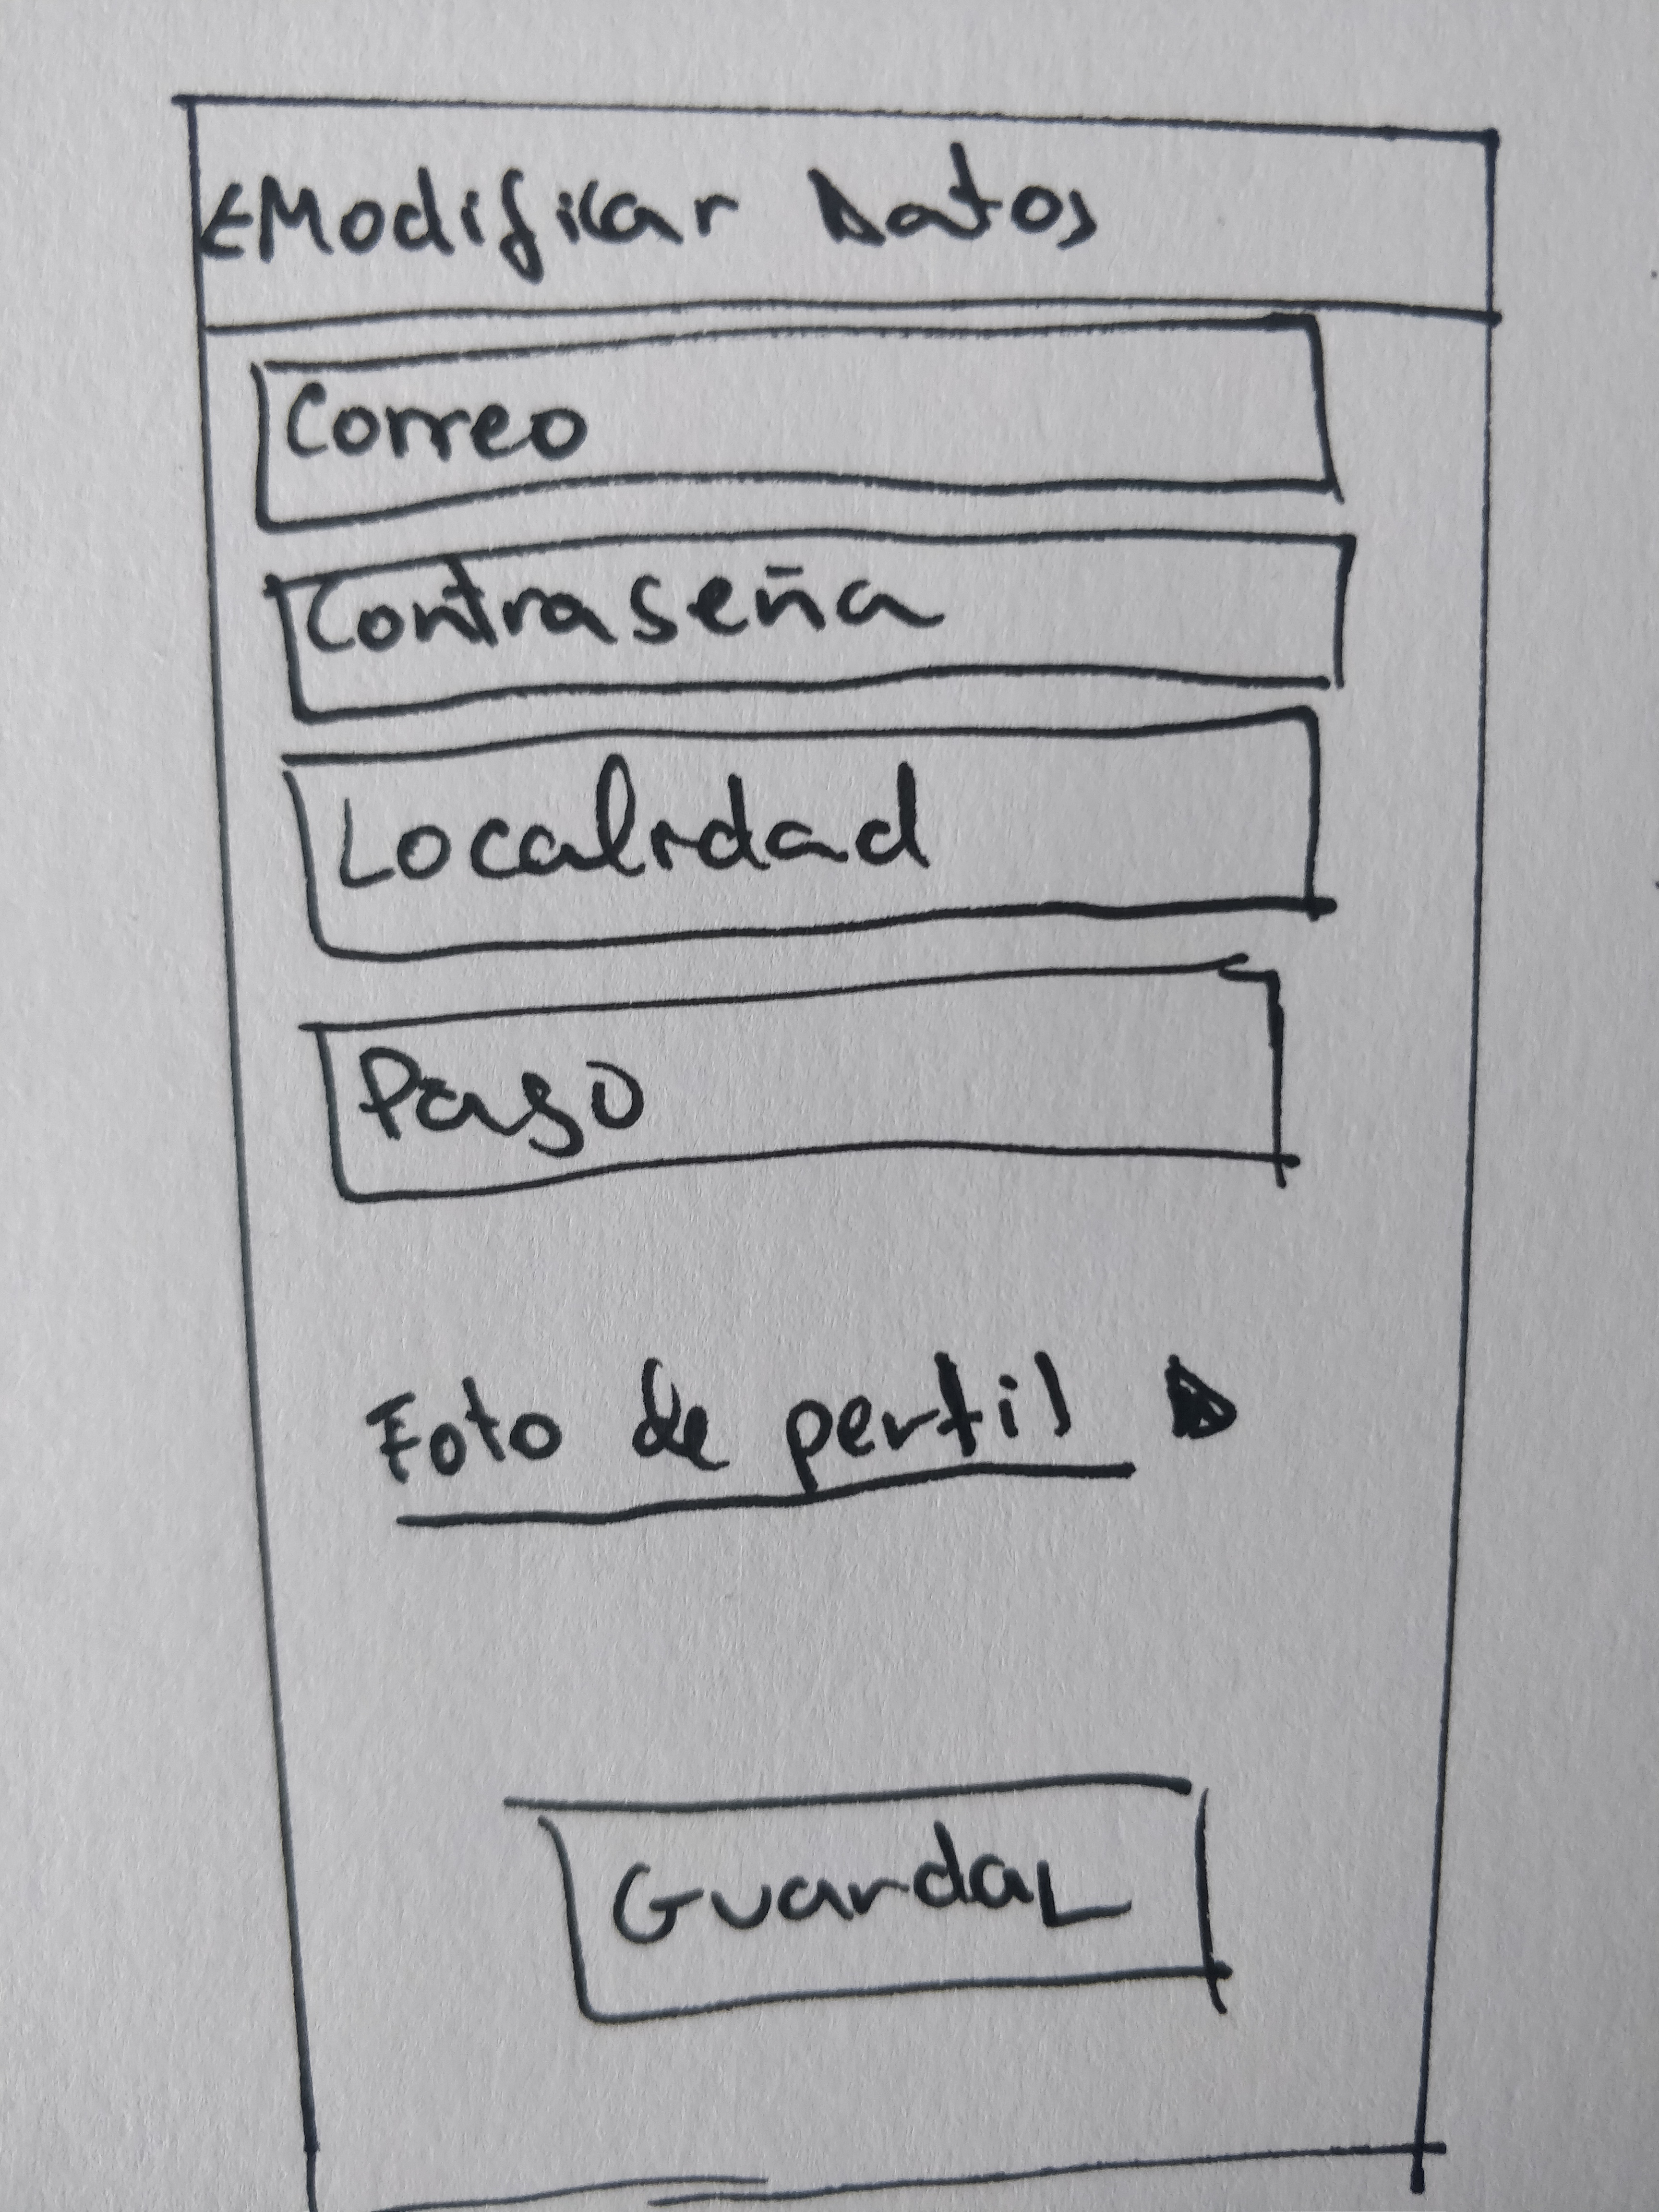 ←Modificar Datos
Correo
Contraseña
Localidad
Pago
Foto de perfil
Guardar